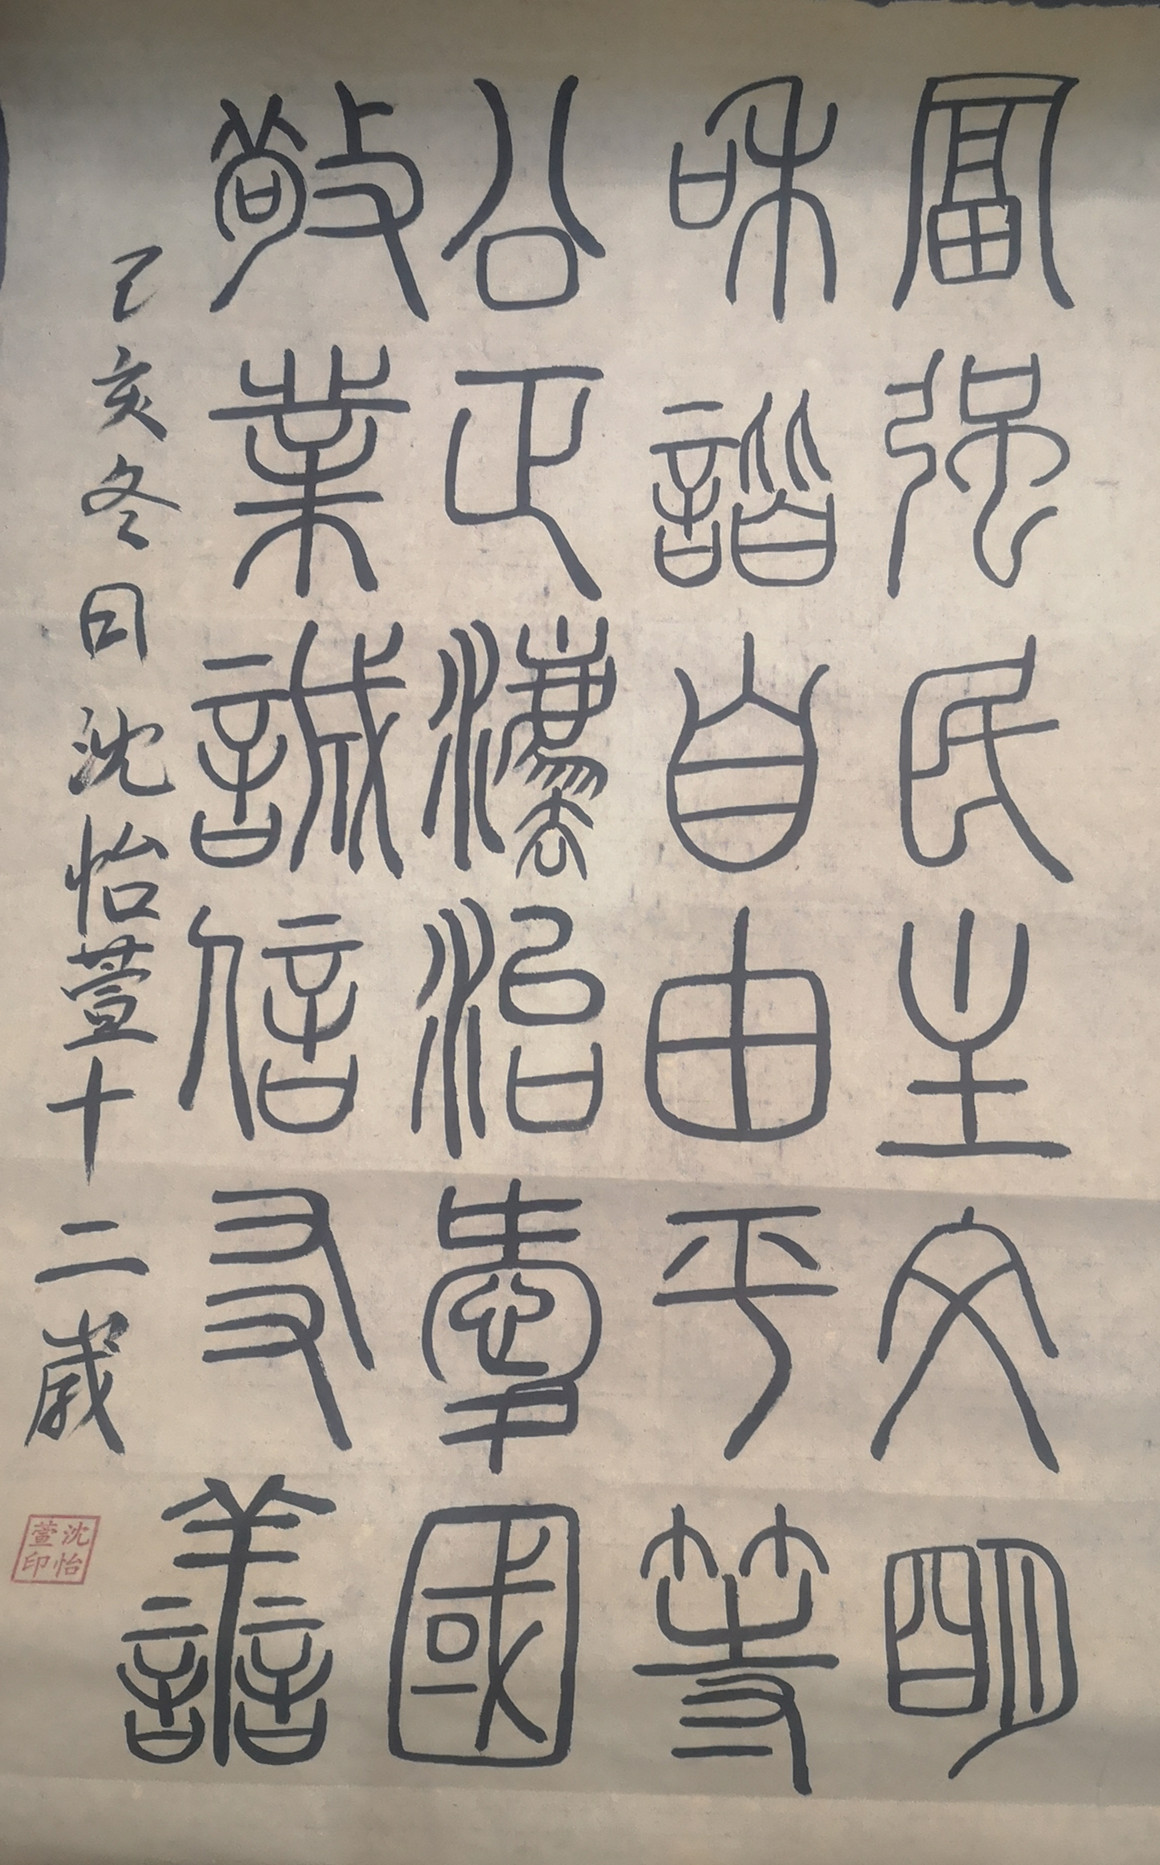 富强民主文明
和諧自由平等
公正灋治愛國
敬業誠信友譱
己亥冬日沈怡萱十二歲
沈怡萱印